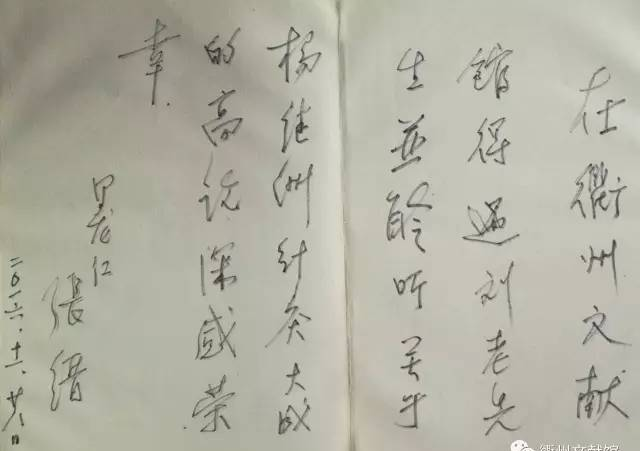 在衢州文献
馆得遇刘老先
生並聆听关于
杨继洲针灸大成
的高论深感荣
幸.
黑龙江
张缙
二〇一六.十一.廿八日
衢州文献馆